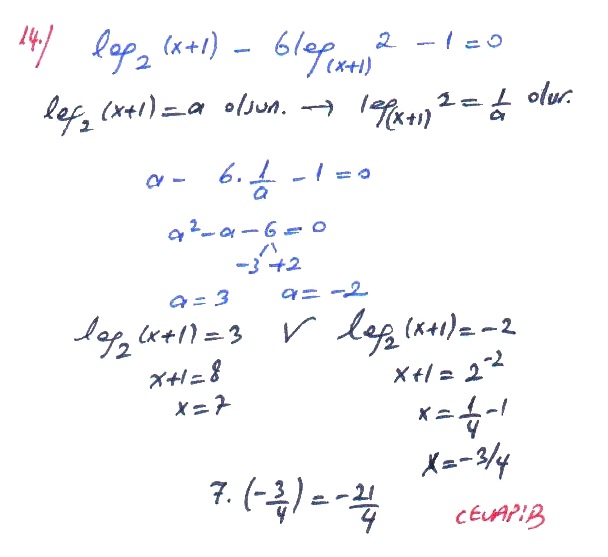 14-) log₂(x+1) - 6log₍ₓ₊₁₎2 - 1 = 0
log₂(x+1) = a olsun. → log₍ₓ₊₁₎2 = 1/a olur.
a - 6. 1/a - 1 = 0
a² - a - 6 = 0
-3 +2
a = 3 a = -2
log₂(x+1) = 3 V log₂(x+1) = -2
x+1 = 8 x+1 = 2⁻²
x = 7 x = 1/4 - 1
x = -3/4
7. (-3/4) = -21/4
CEVAP:B